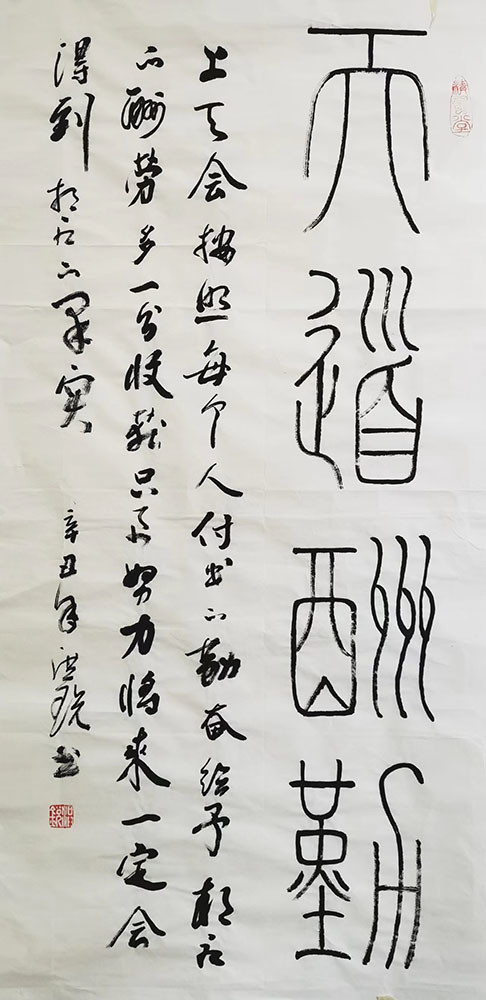 天道酬勤
上天会按照每个人付出的勤奋给予相应
的酬劳多一分收获只要努力将来一定会
得到相应的果实
辛丑年洪锐书